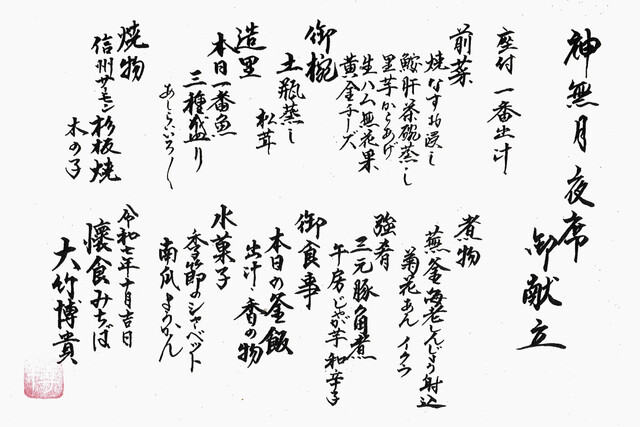 神無月 夜席
御献立
座付 一番出汁
前菜
焼なすお浸し
鮟肝茶碗蒸し
里芋からあげ
生ハム無花果
黄金チーズ
御椀
土瓶蒸し
松茸
造里
本日一番魚
三種盛り
あしらいいろ〱
焼物
信州サーモン杉板焼
木の子
煮物
蕪釜海老しんじょう射込
菊花あん イクラ
強肴
三元豚角煮
牛房 じゃが芋 和辛子
御食事
本日の釜飯
出汁 香の物
水菓子
季節のシャーベット
南瓜ようかん
令和七年十月吉日
懐食みちば
大竹博貴